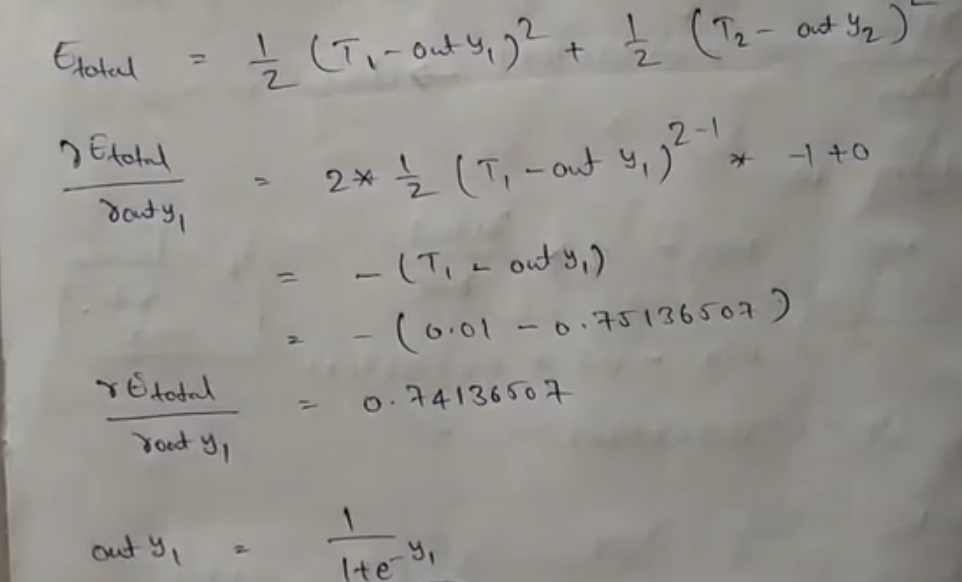 Etotal = 1/2 (T₁ - out y₁)² + 1/2 (T₂ - out y₂)²
∂Etotal/∂out y₁ = 2 * 1/2 (T₁ - out y₁)²⁻¹ * -1 + 0
= - (T₁ - out y₁)
= - (0.01 - 0.75136507)
∂Etotal/∂out y₁ = 0.74136507
out y₁ = 1/1+e⁻y₁